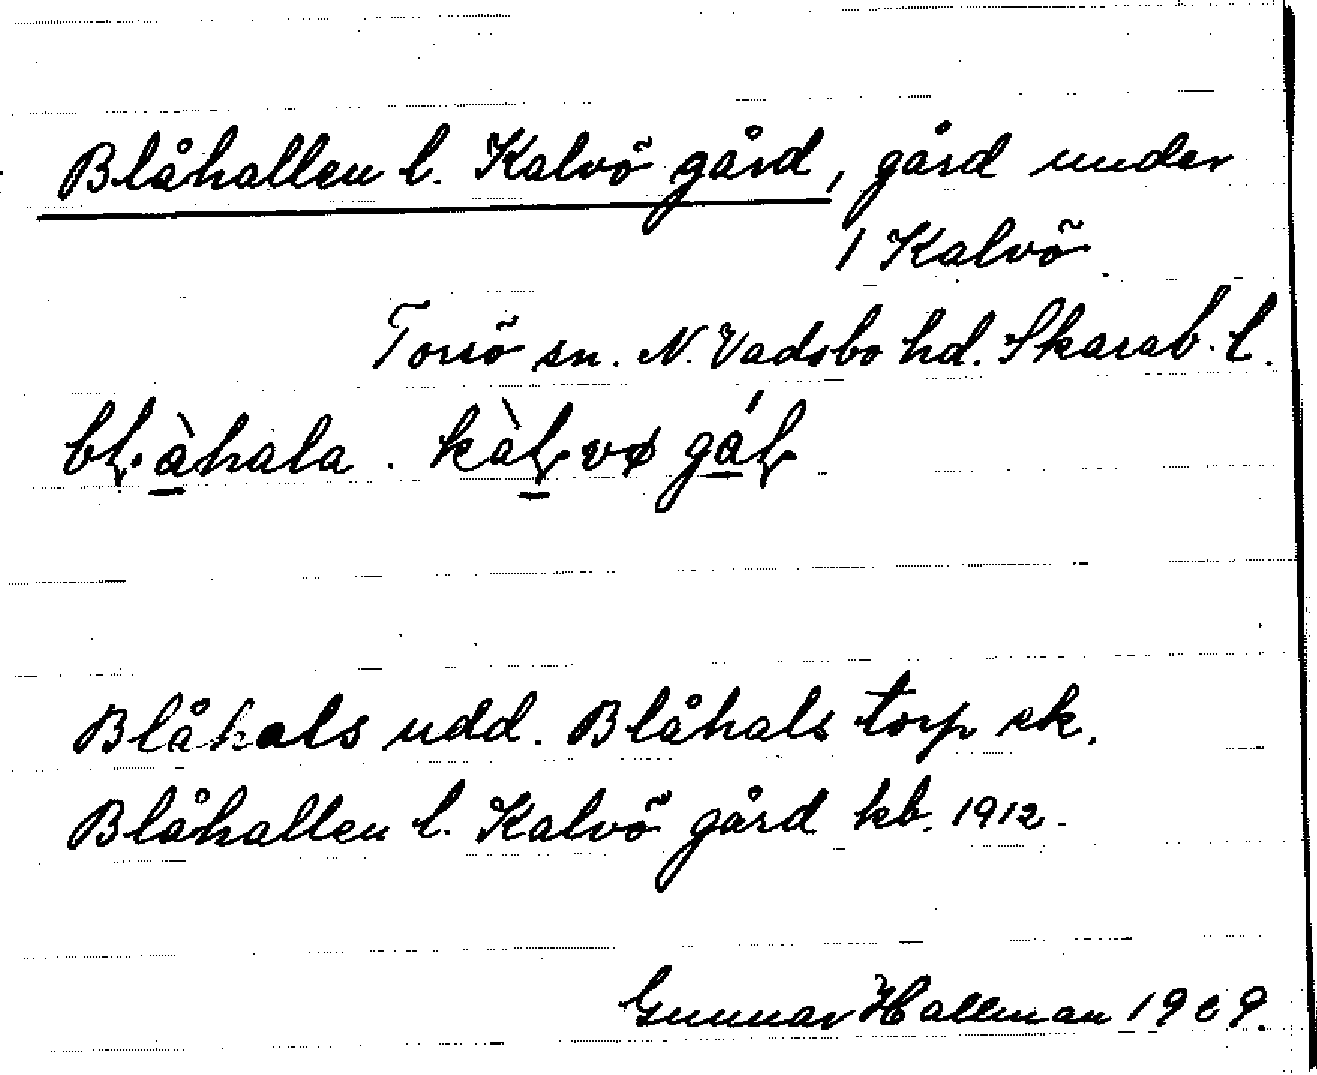 Blåhallen l. Kalvö gård, gård under
1 Kalvö
Torsö sn. N. Vadsbo hd. Skarab. l.
bḷàhala. kàḷvø gáḷ
Blåhals udd. Blåhals torp ek.
Blåhallen l. Kalvö gård kb. 1912.
Gunnar Hallman 1909.